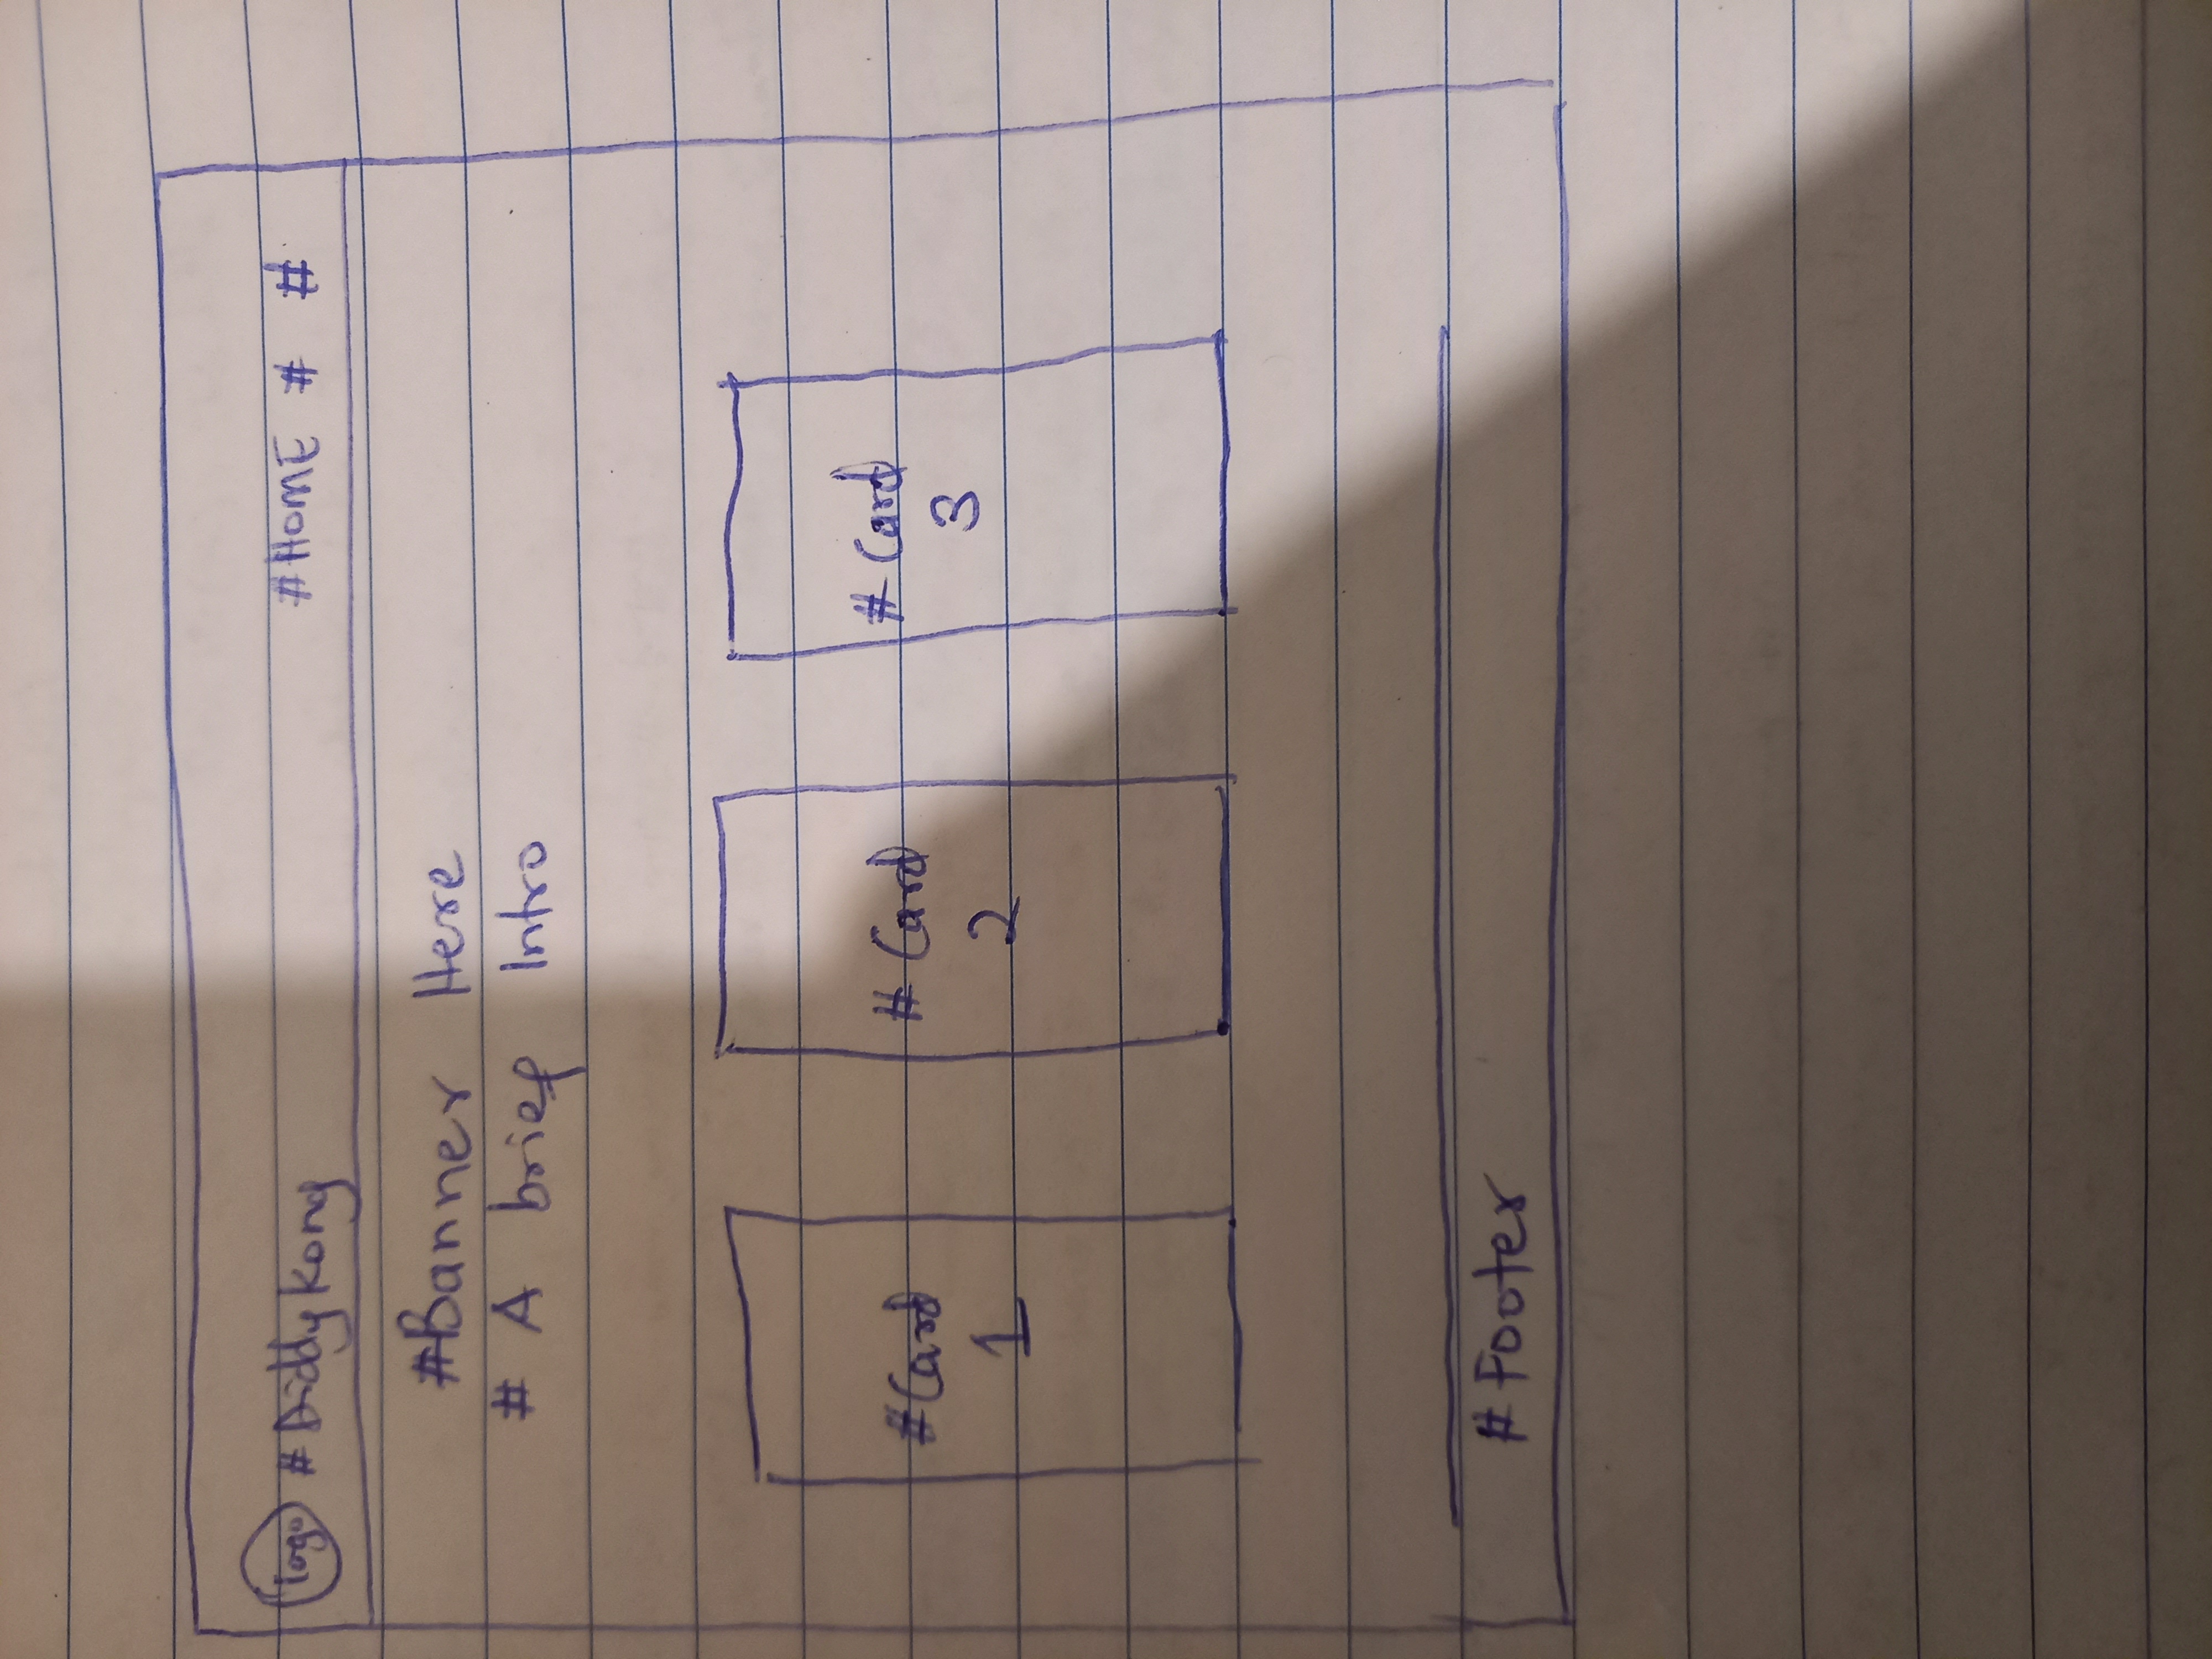 logo #Diddy Kong #HOME # #
#Banner Here
# A brief Intro
#Card
1
# Card
2
# Card
3
#Footer